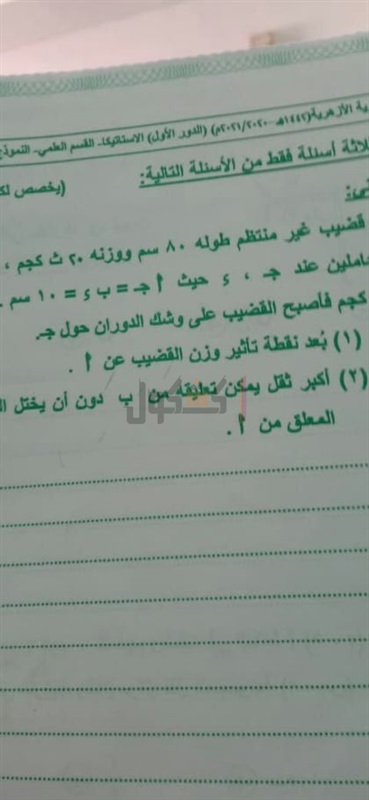 ية الأزهرية (١٤٤٢هـ-٢٠٢١/٢٠٢٠م) (الدور الأول) الاستاتيكا- القسم العلمي- النموذج
ثلاثة أسئلة فقط من الأسئلة التالية: (يخصص لك
تي:
قضيب غير منتظم طوله ٨٠ سم ووزنه ٢٠ ث كجم ،
حاملين عند جـ ، ء حيث أ جـ = ب ء = ١٠ سم .
كجم فأصبح القضيب على وشك الدوران حول جـ
(١) بُعد نقطة تأثير وزن القضيب عن أ .
(٢) أكبر ثقل يمكن تعليقه من ب دون أن يختل ال
المعلق من أ .